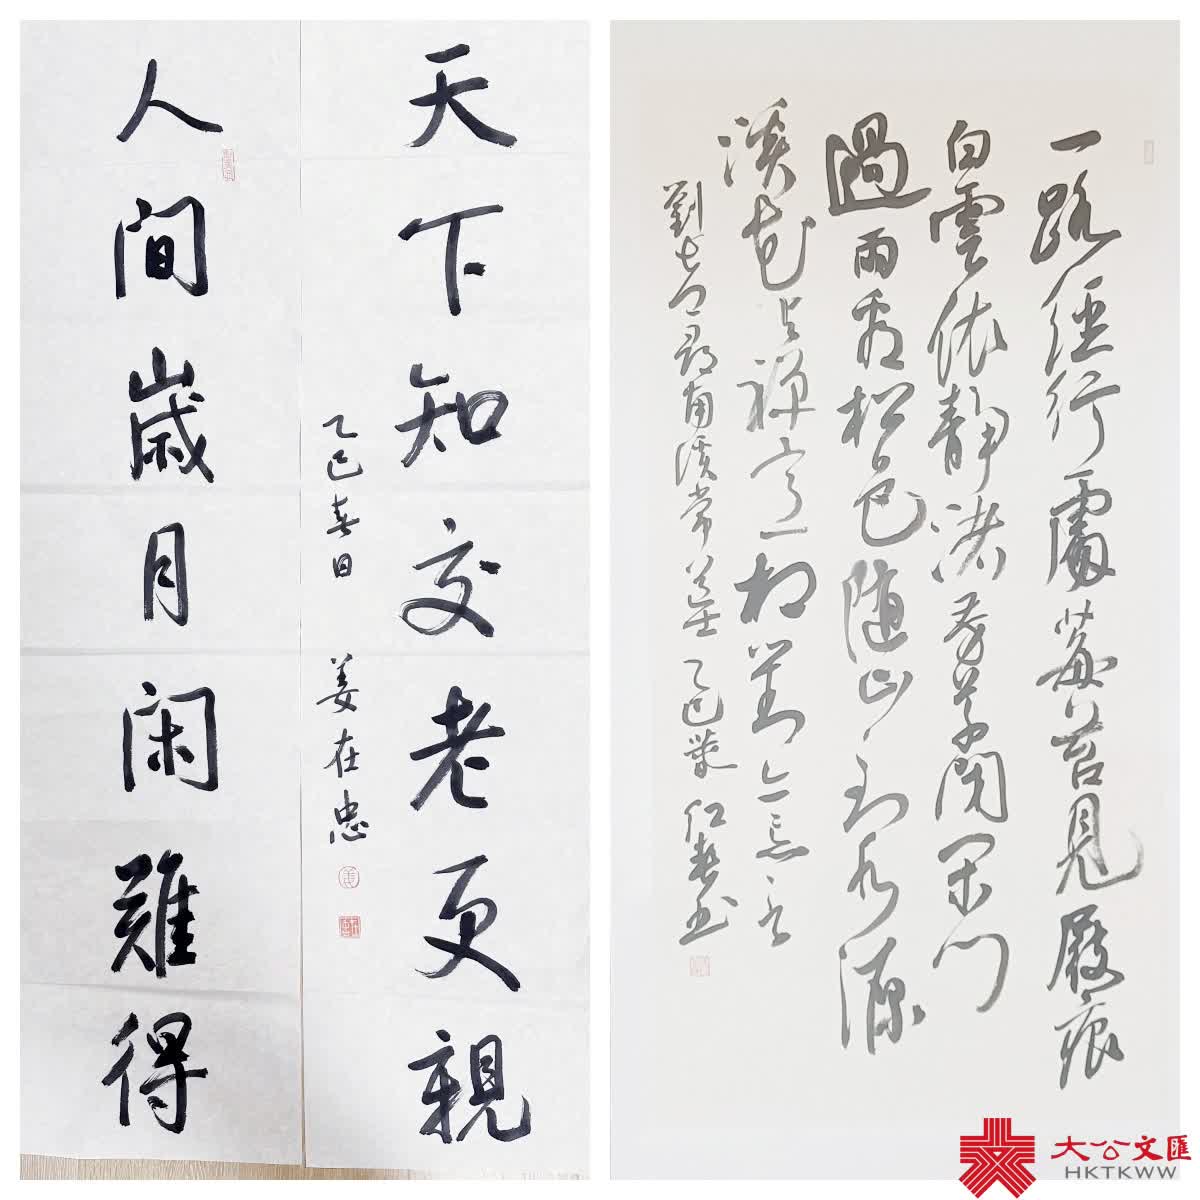 天下知交老更親
人間歲月閑難得
乙巳春日 姜在忠
一路經行處莓苔見屐痕
白雲依靜渚芳草閉閑門
過雨看松色隨山到水源
溪花與禪意相對亦忘言
劉長卿尋南溪常道士 乙巳 書
大公文匯
HKTKWW